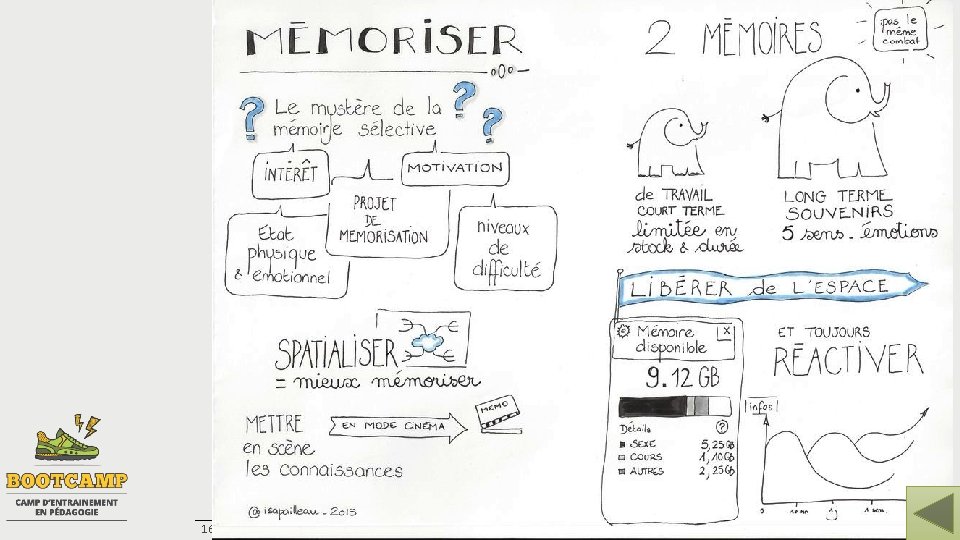 MÉMORISER
Le mystère de la
mémoire sélective
INTÉRÊT
MOTIVATION
PROJET
DE
MEMORISATION
État
physique
& émotionnel
niveaux
de
difficulté
SPATIALISER
= mieux mémoriser
METTRE
en scène
les connaissances
EN MODE CINÉMA
MEMO
@isapailleau - 2015
2 MÉMOIRES
pas le
même
combat
de TRAVAIL
COURT TERME
limitée en
stock & durée
LONG TERME
SOUVENIRS
5 sens - émotions
LIBÉRER de L'ESPACE
Mémoire
disponible
X
9.12 GB
Détails
?
SEXE 5,25 Gb
COURS 1,10 Gb
AUTRES 2,25 Gb
ET TOUJOURS
RÉACTIVER
infos
0
BOOTCAMP
CAMP D'ENTRAINEMENT
EN PÉDAGOGIE
16